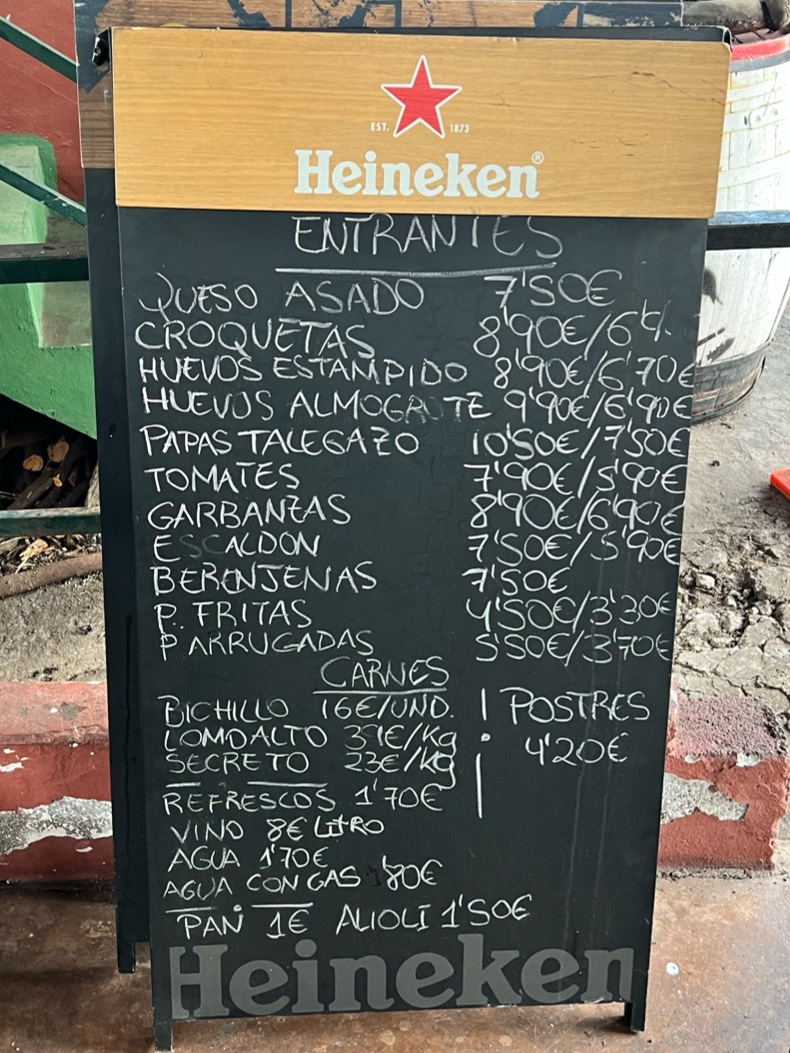 EST. 1873
Heineken®
ENTRANTES
QUESO ASADO 7'50€
CROQUETAS 8'90€/6'9
HUEVOS ESTAMPIDO 8'90€/6'70€
HUEVOS ALMOGROTE 9'90€/6'90€
PAPAS TALEGAZO 10'50€/7'50€
TOMATES 7'90€/5'90€
GARBANZAS 8'90€/6'90€
ESCALDON 7'50€/5'90€
BERENJENAS 7'50€
P. FRITAS 4'50€/3'30€
P ARRUGADAS 5'50€/3'70€
CARNES
BICHILLO 16€/UND.
LOMO ALTO €/Kg
SECRETO 23€/Kg
POSTRES
4'20€
REFRESCOS 1'70€
VINO 8€ LITRO
AGUA 1'70€
AGUA CON GAS 1'80€
PAN 1€ ALIOLI 1'50€
Heineken